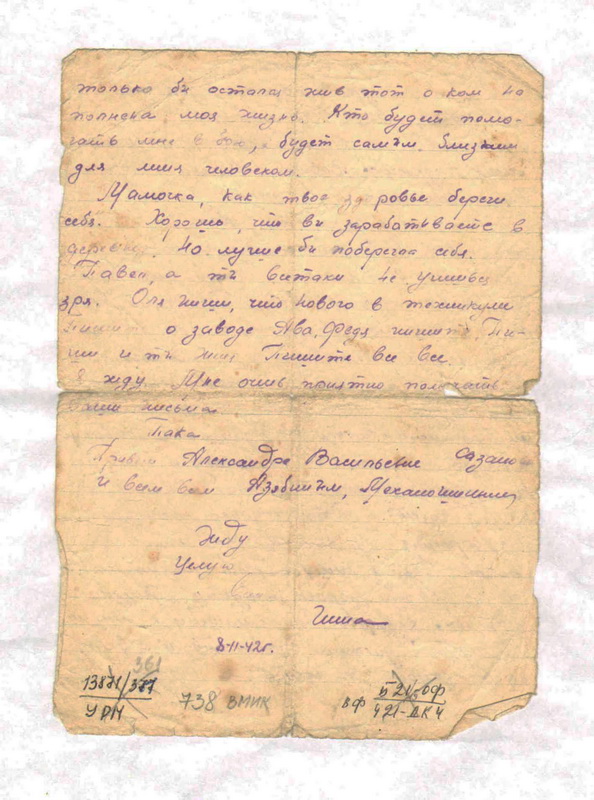 только би остался жив тот о ком на
полнена моя жизнь. Кто будет помо-
гать мне в бою, будет самым близким
для меня человеком.
Мамочка, как твое здоровье береги
себя. Хорошо, что ви зарабатываете в
деревне. но лучше би поберегла себя.
Павел, а ти всетаки не унивай
зря. Оля пиши, что нового в техникуме
Пишите о заводе Ава, Федя пишите. Пи-
ши и ти Пишите все все.
Я жду. Мне очень приятно получать
Ваши письма
Пака
Привет Александре Васильевне
и всем вам
Жду
Целую
8-11-42г.
361
13871/377
УРМ
738 ВМИК
ВФ